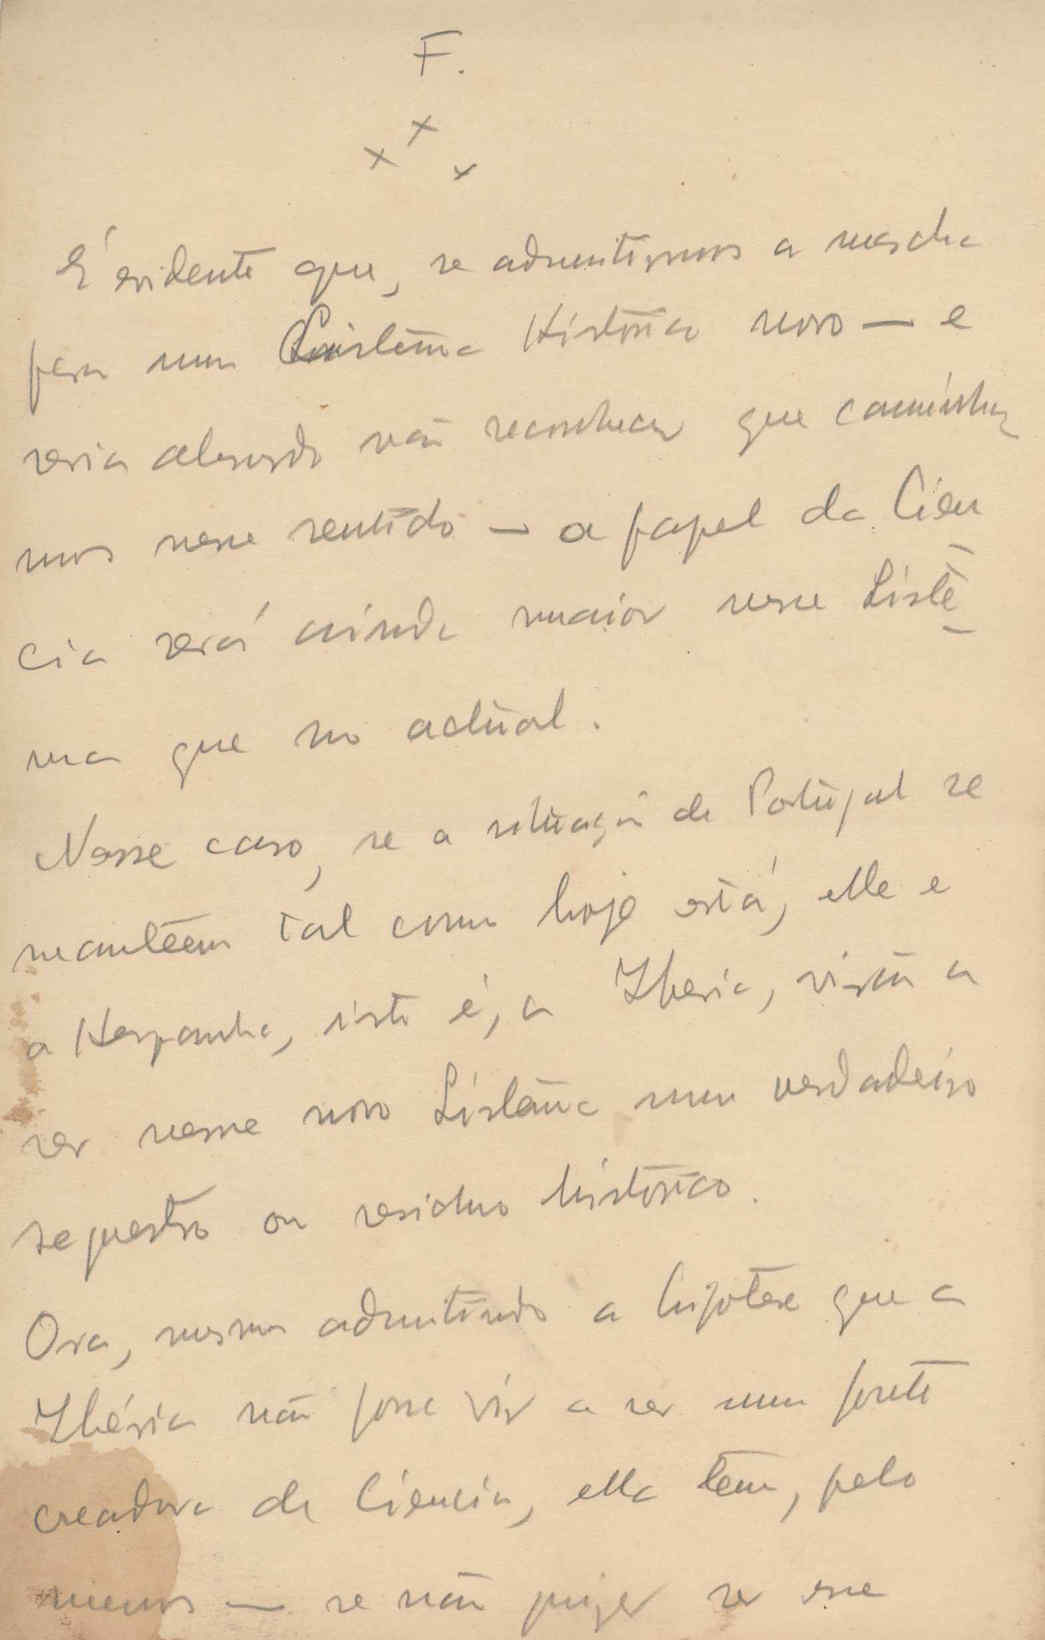 F.
× × ×
É evidente que, se admittirmos a marcha
para um Sistema Histórico novo — e
seria absurdo não reconhecer que caminha
mos nesse sentido — o papel da Cien
cia será ainda maior nesse Siste
ma que no actual.
Nesse caso, se a situação de Portugal se
mantêem tal como hoje está, elle e
a Hespanha, isto é, a Iberia, virão a
ser nesse novo Sistema um verdadeiro
sequestro ou residuo histórico.
Ora, mesmo admitindo a hipotese que a
Ibéria não possa vir a ser uma forte
creadora de Ciencia, ella tem, pelo
menos — se não quizer ser esse